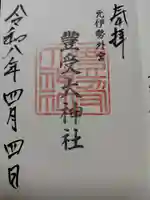 奉拝
元伊勢外宮
豊受大神社
令和八年四月四日